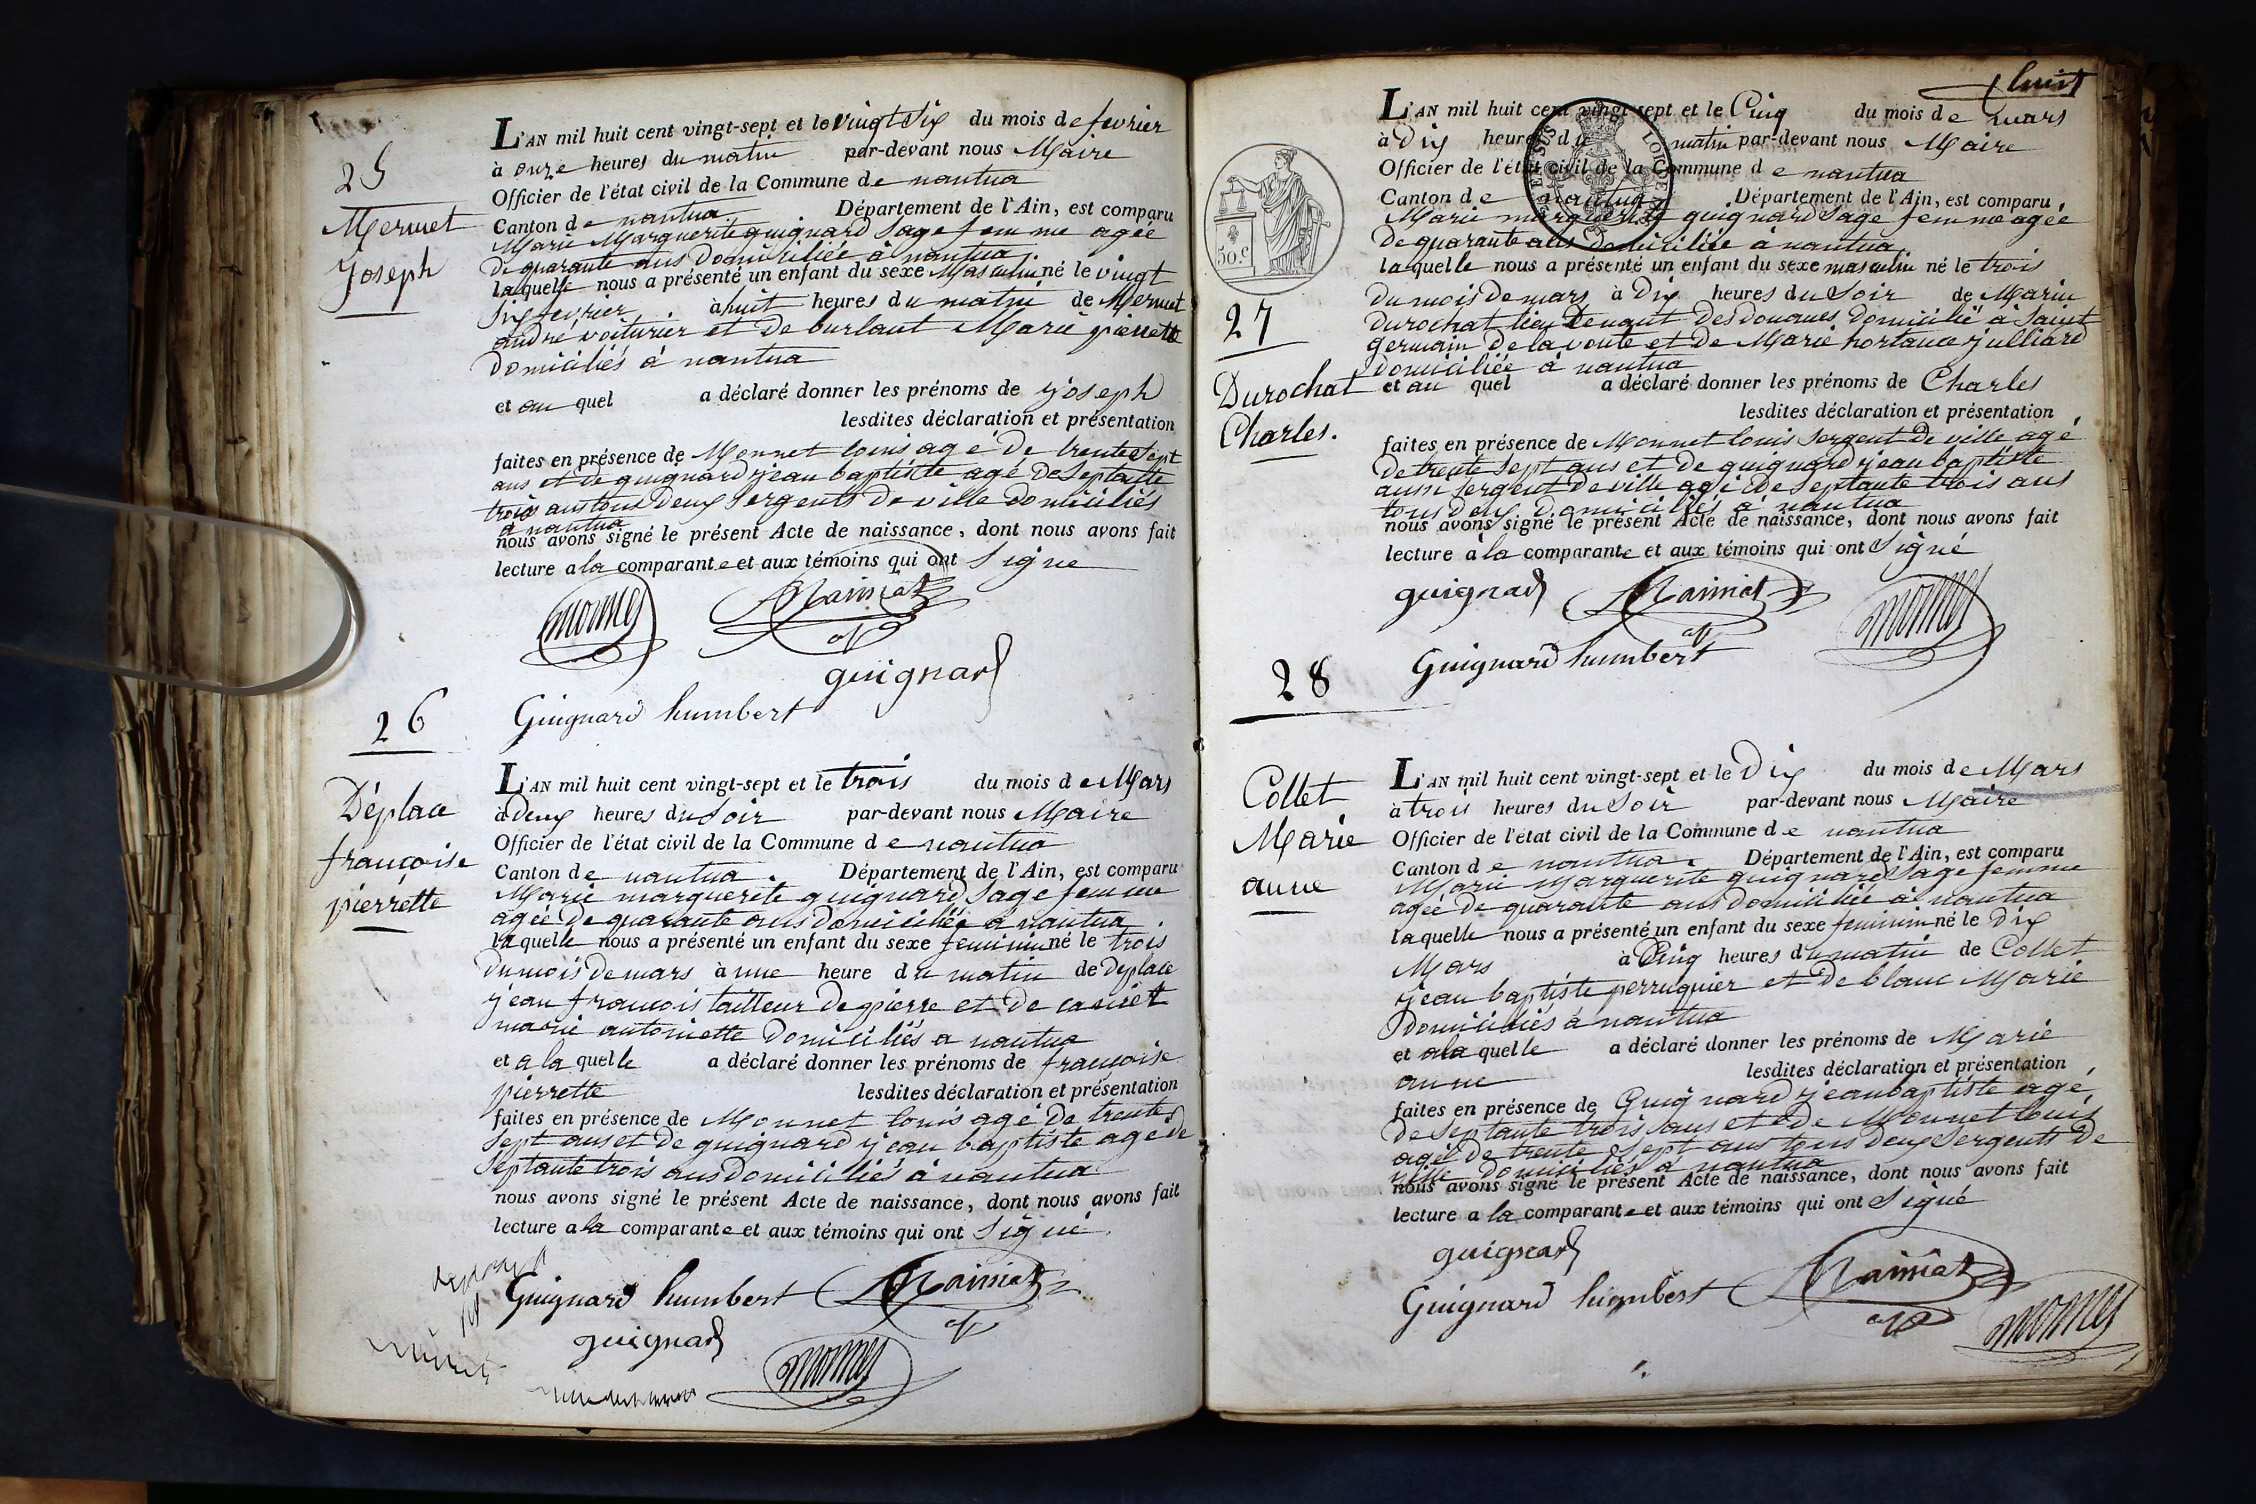 25
Mermet
Joseph
L'AN mil huit cent vingt-sept et le vingt six du mois de fevrier
à onze heures du matin par-devant nous Maire
Officier de l'état civil de la Commune de nantua
Canton de nantua Département de l'Ain, est comparu
Marie Marguerite guignard Sage femme agée
de quarante ans Domiciliée à nantua
laquelle nous a présenté un enfant du sexe Masculin né le vingt
six fevrier à huit heures du matin de Mermet
andré voiturier et de burlant Marie pierrette
Domiciliés à nantua
et au quel a déclaré donner les prénoms de Joseph
lesdites déclaration et présentation
faites en présence de Monnet louis agé De trente Sept
ans et de guignard jean baptiste agé De Septante
trois ans tous Deux Sergents De ville domiciliés
à nantua
nous avons signé le présent Acte de naissance, dont nous avons fait
lecture a la comparante et aux témoins qui ont Signé
monnet
guignard
Guignard humbert
26
Déplace
françoise
pierrette
L'AN mil huit cent vingt-sept et le trois du mois de Mars
à Deux heures du Soir par-devant nous Maire
Officier de l'état civil de la Commune de nantua
Canton de nantua. Département de l'Ain, est comparu
Marie marguerite guignard Sage femme
agée De quarante ans Domiciliée a nantua
laquelle nous a présenté un enfant du sexe feminin né le trois
Du mois de mars à une heure du matin de Déplace
jean françois tailleur De pierre et De
marie antoinette Domiciliés a nantua
et a la quelle a déclaré donner les prénoms de françoise
pierrette lesdites déclaration et présentation
faites en présence de Monnet louis agé De trente
Sept ans et de guignard jean baptiste agé de
Septante trois ans Domiciliés à nantua
nous avons signé le présent Acte de naissance, dont nous avons fait
lecture a la comparante et aux témoins qui ont Signé.
Guignard humbert
guignard
monnet
huit
50 c.
27
Durochat
Charles.
L'AN mil huit cent vingt-sept et le Cinq du mois de mars
à Dix heures du matin par-devant nous Maire
Officier de l'état civil de la Commune de nantua
Canton de nantua Département de l'Ain, est comparu
Marie marguerite guignard Sage femme agée
De quarante ans domiciliée à nantua
laquelle nous a présenté un enfant du sexe masculin né le trois
Du mois De mars à Dix heures du Soir de Marin
Durochat lieutenant Des Douanes Domicilié à Saint
germain De la voute et De Marie hortance julliard
Domiciliée à nantua
et au quel a déclaré donner les prénoms de Charles
lesdites déclaration et présentation
faites en présence de Monnet louis Sergent De ville agé
De trente Sept ans et De guignard jean baptiste
aussi Sergent De ville agé De Septante trois ans
tous Deux Domiciliés à nantua
nous avons signé le présent Acte de naissance, dont nous avons fait
lecture à la comparante et aux témoins qui ont Signé
guignard
monnet
Guignard humbert
28
Collet
Marie
anne
L'AN mil huit cent vingt-sept et le Dix du mois de Mars
à trois heures du Soir par-devant nous Maire
Officier de l'état civil de la Commune de nantua
Canton de nantua. Département de l'Ain, est comparu
Marie Marguerite guignard Sage femme
agée De quarante ans Domiciliée à nantua
laquelle nous a présenté un enfant du sexe feminin né le Dix
Mars à Cinq heures du matin de Collet
jean baptiste perruquier et De blanc Marie
Domiciliés à nantua
et a la quelle a déclaré donner les prénoms de Marie
anne lesdites déclaration et présentation
faites en présence de Guignard jean baptiste agé
De Septante trois ans et De Monnet louis
agé De trente Sept ans tous Deux Sergents De
ville Domiciliés à nantua
nous avons signé le présent Acte de naissance, dont nous avons fait
lecture a la comparante et aux témoins qui ont Signé
guignard
Guignard humbert
monnet